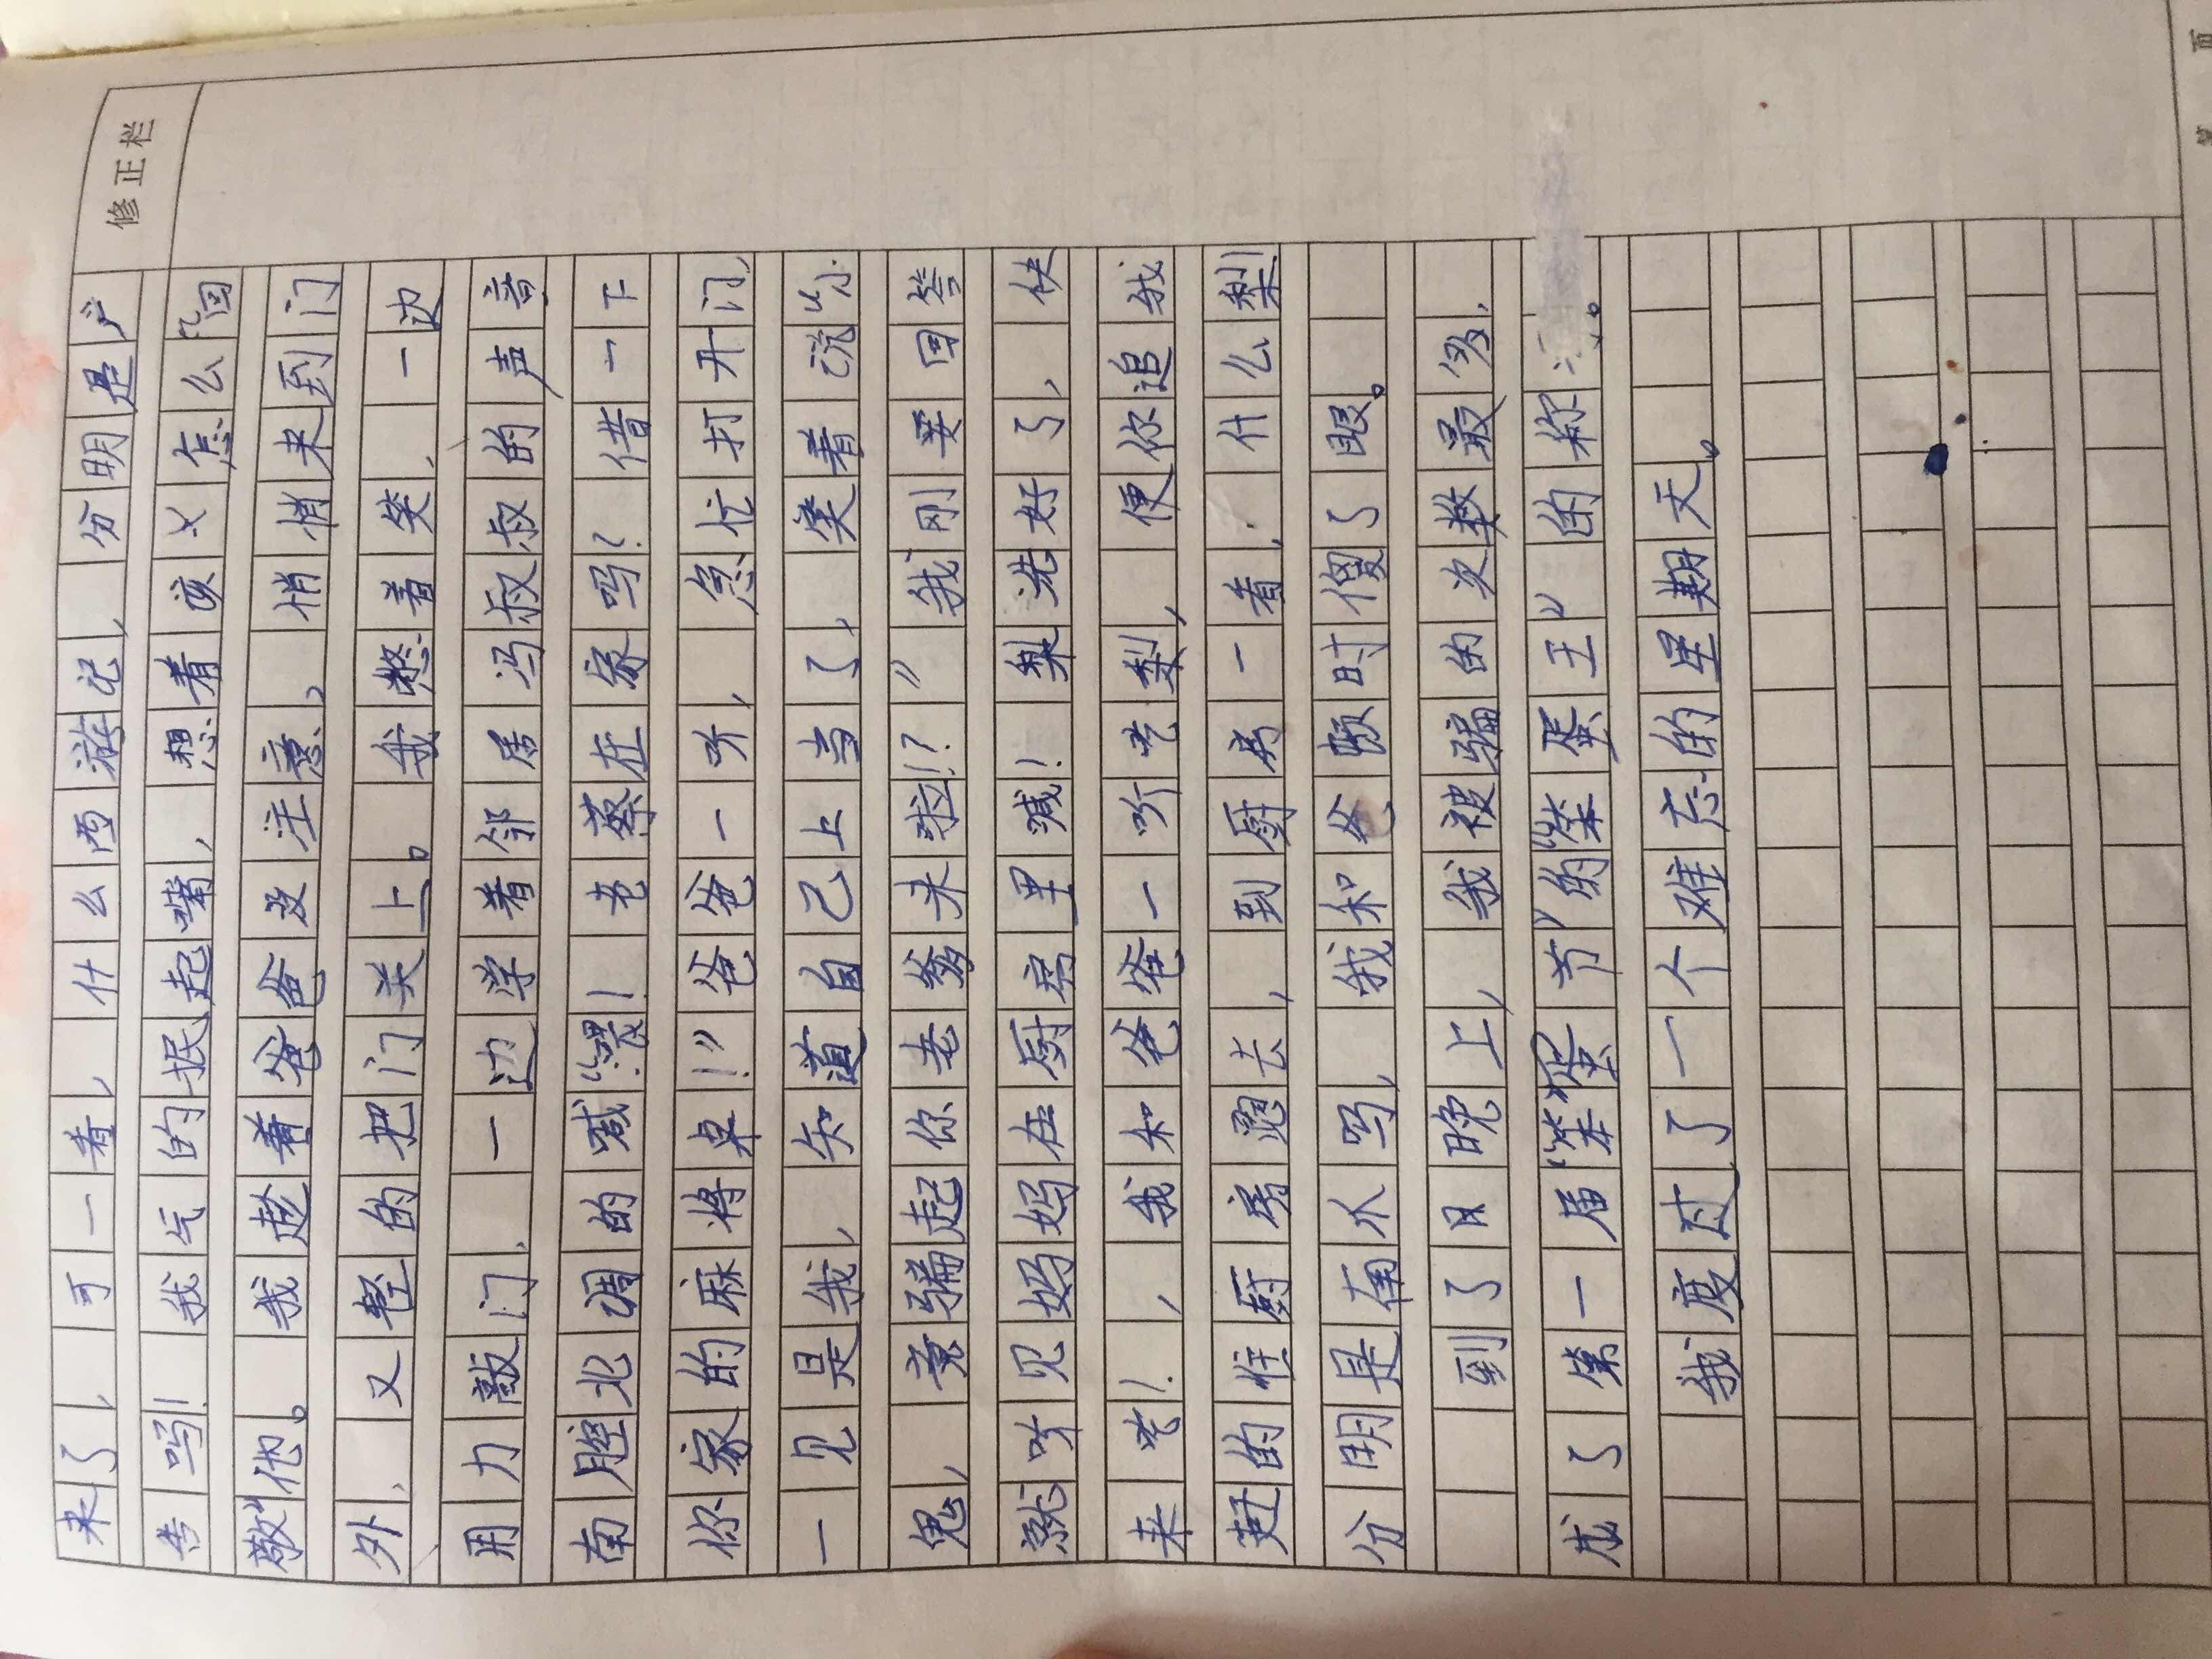 修正栏
来了，可一看，什么西游记，分明是广
告吗！我气的抿起嘴，想着该又怎么“回
敬”他。我趁着爸爸没注意，悄悄来到门
外，又轻的把门关上。我憋着笑，一边
用力敲门，一边学着邻居冯叔叔的声音
南腔北调的喊“喂！老蔡在家吗？借一下
你家的麻将桌！”爸爸一听，急忙打开门，
一见是我，知道自己上当了，笑着说“小
鬼，竟骗起你老爹来啦！？”我刚要回答
就听见妈妈在厨房里喊！梨洗好了，快
来吃！，我和爸爸一听吃梨，便你追我
赶的往厨房跑去，到厨房一看，什么梨
分明是南瓜吗，我和爸顿时傻了眼。
到了日晚上，我被骗的次数最多，
成了第一届“笨蛋节”的“笨蛋王”的称
我度过了一个难忘的星期天。
第 页